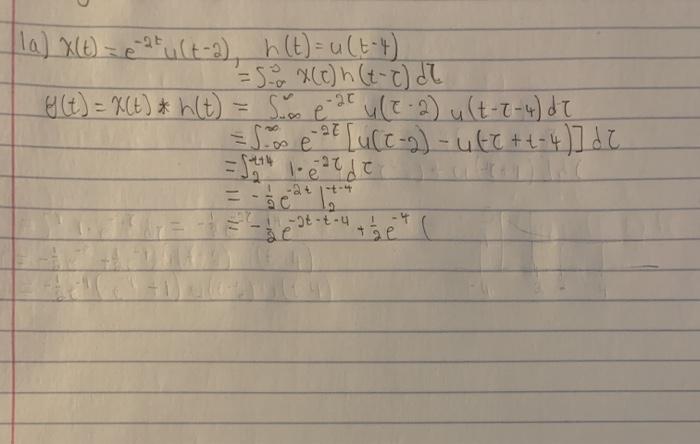 1a) x(t) = e^{-2t} u(t-2), h(t) = u(t-4)
= ∫_{-∞}^{∞} x(τ) h(t-τ) dτ
y(t) = x(t) * h(t) = ∫_{-∞}^{∞} e^{-2τ} u(τ-2) u(t-τ-4) dτ
= ∫_{-∞}^{∞} e^{-2τ} [u(τ-2) - u(-τ+t-4)] dτ
= ∫_{2}^{-t+4} 1·e^{-2τ} dτ
= -½ e^{-2t} |_{2}^{-t-4}
= -½ e^{-2t-t-4} + ½ e^{-4} (